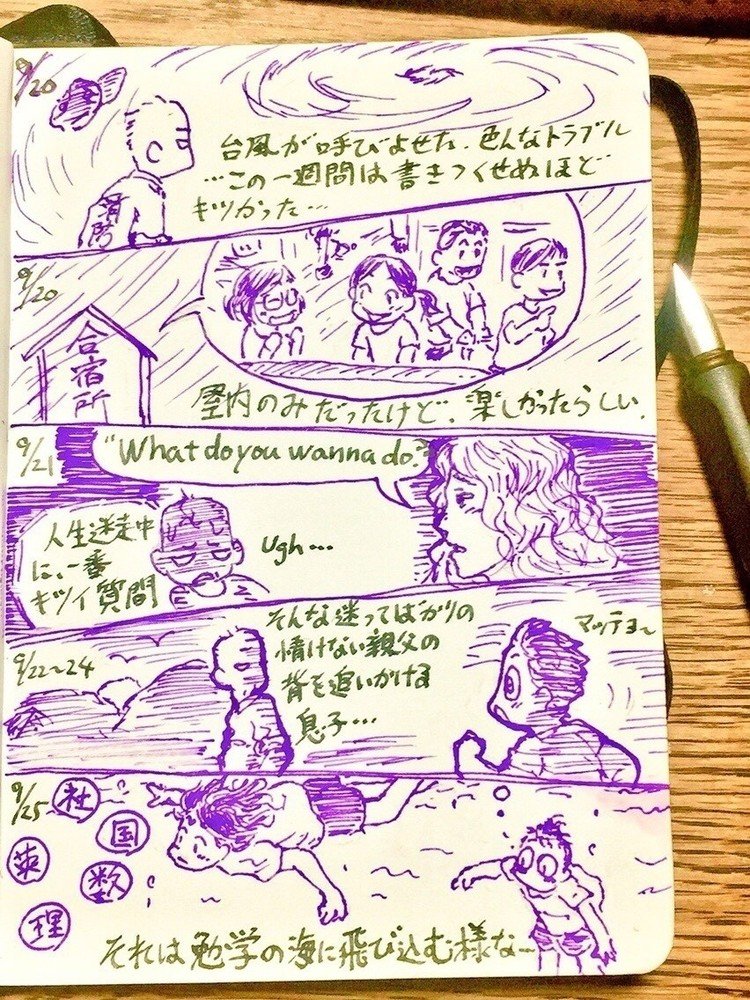 9/20
台風が呼びよせた、色んなトラブル
…この一週間は書きつくせぬほど
キツかった…
消防
9/20
合宿所
屋内のみだったけど、楽しかったらしい。
9/21
"What do you wanna do?"
人生迷走中
に、一番
キツイ質問
Ugh…
9/22〜24
そんな迷ってばかりの
情けない親父の
背を追いかける
息子…
マッテヨ〜
9/25
社
国
英
数
理
それは勉学の海に飛び込む様な…